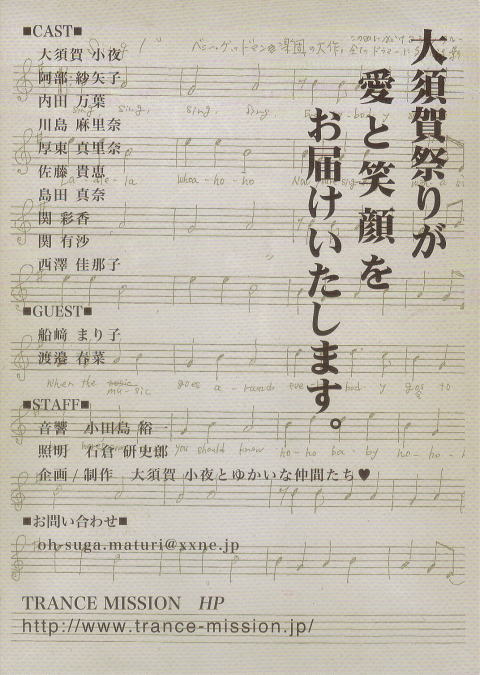 大須賀祭りが
愛と笑顔を
お届けいたします。
■CAST■
大須賀 小夜
阿部 紗矢子
内田 万葉
川島 麻里奈
厚東 真里奈
佐藤 貴恵
島田 真奈
関 彩香
関 有沙
西澤 佳那子
■GUEST■
船﨑 まり子
渡邉 春菜
■STAFF■
音響 小田島 裕一
照明 石倉 研史郎
企画/制作 大須賀 小夜とゆかいな仲間たち♥
■お問い合わせ■
oh-suga.maturi@xxne.jp
TRANCE MISSION HP
http://www.trance-mission.jp/
sing, sing, sing,
La-la-la whoa-ho-ho
When the mu-sic goes a-round eve bod y goes to
you should know ho-ho ba-by ho-ho-